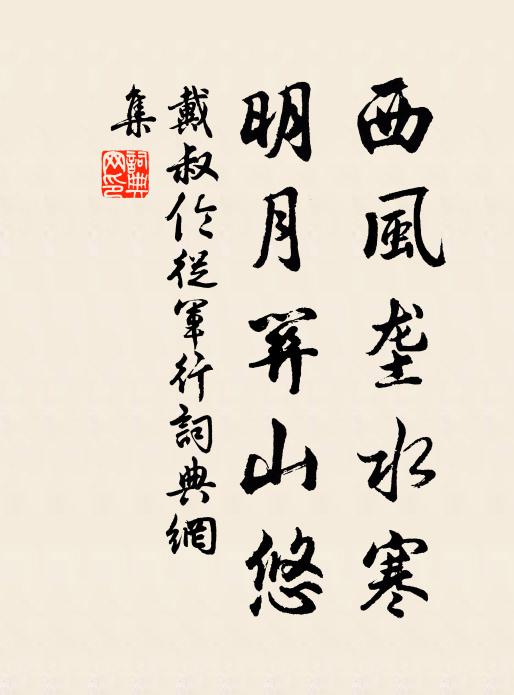 西風垄水寒
明月關山悠
戴叔伦從軍行詞典網
集
詞典
网印